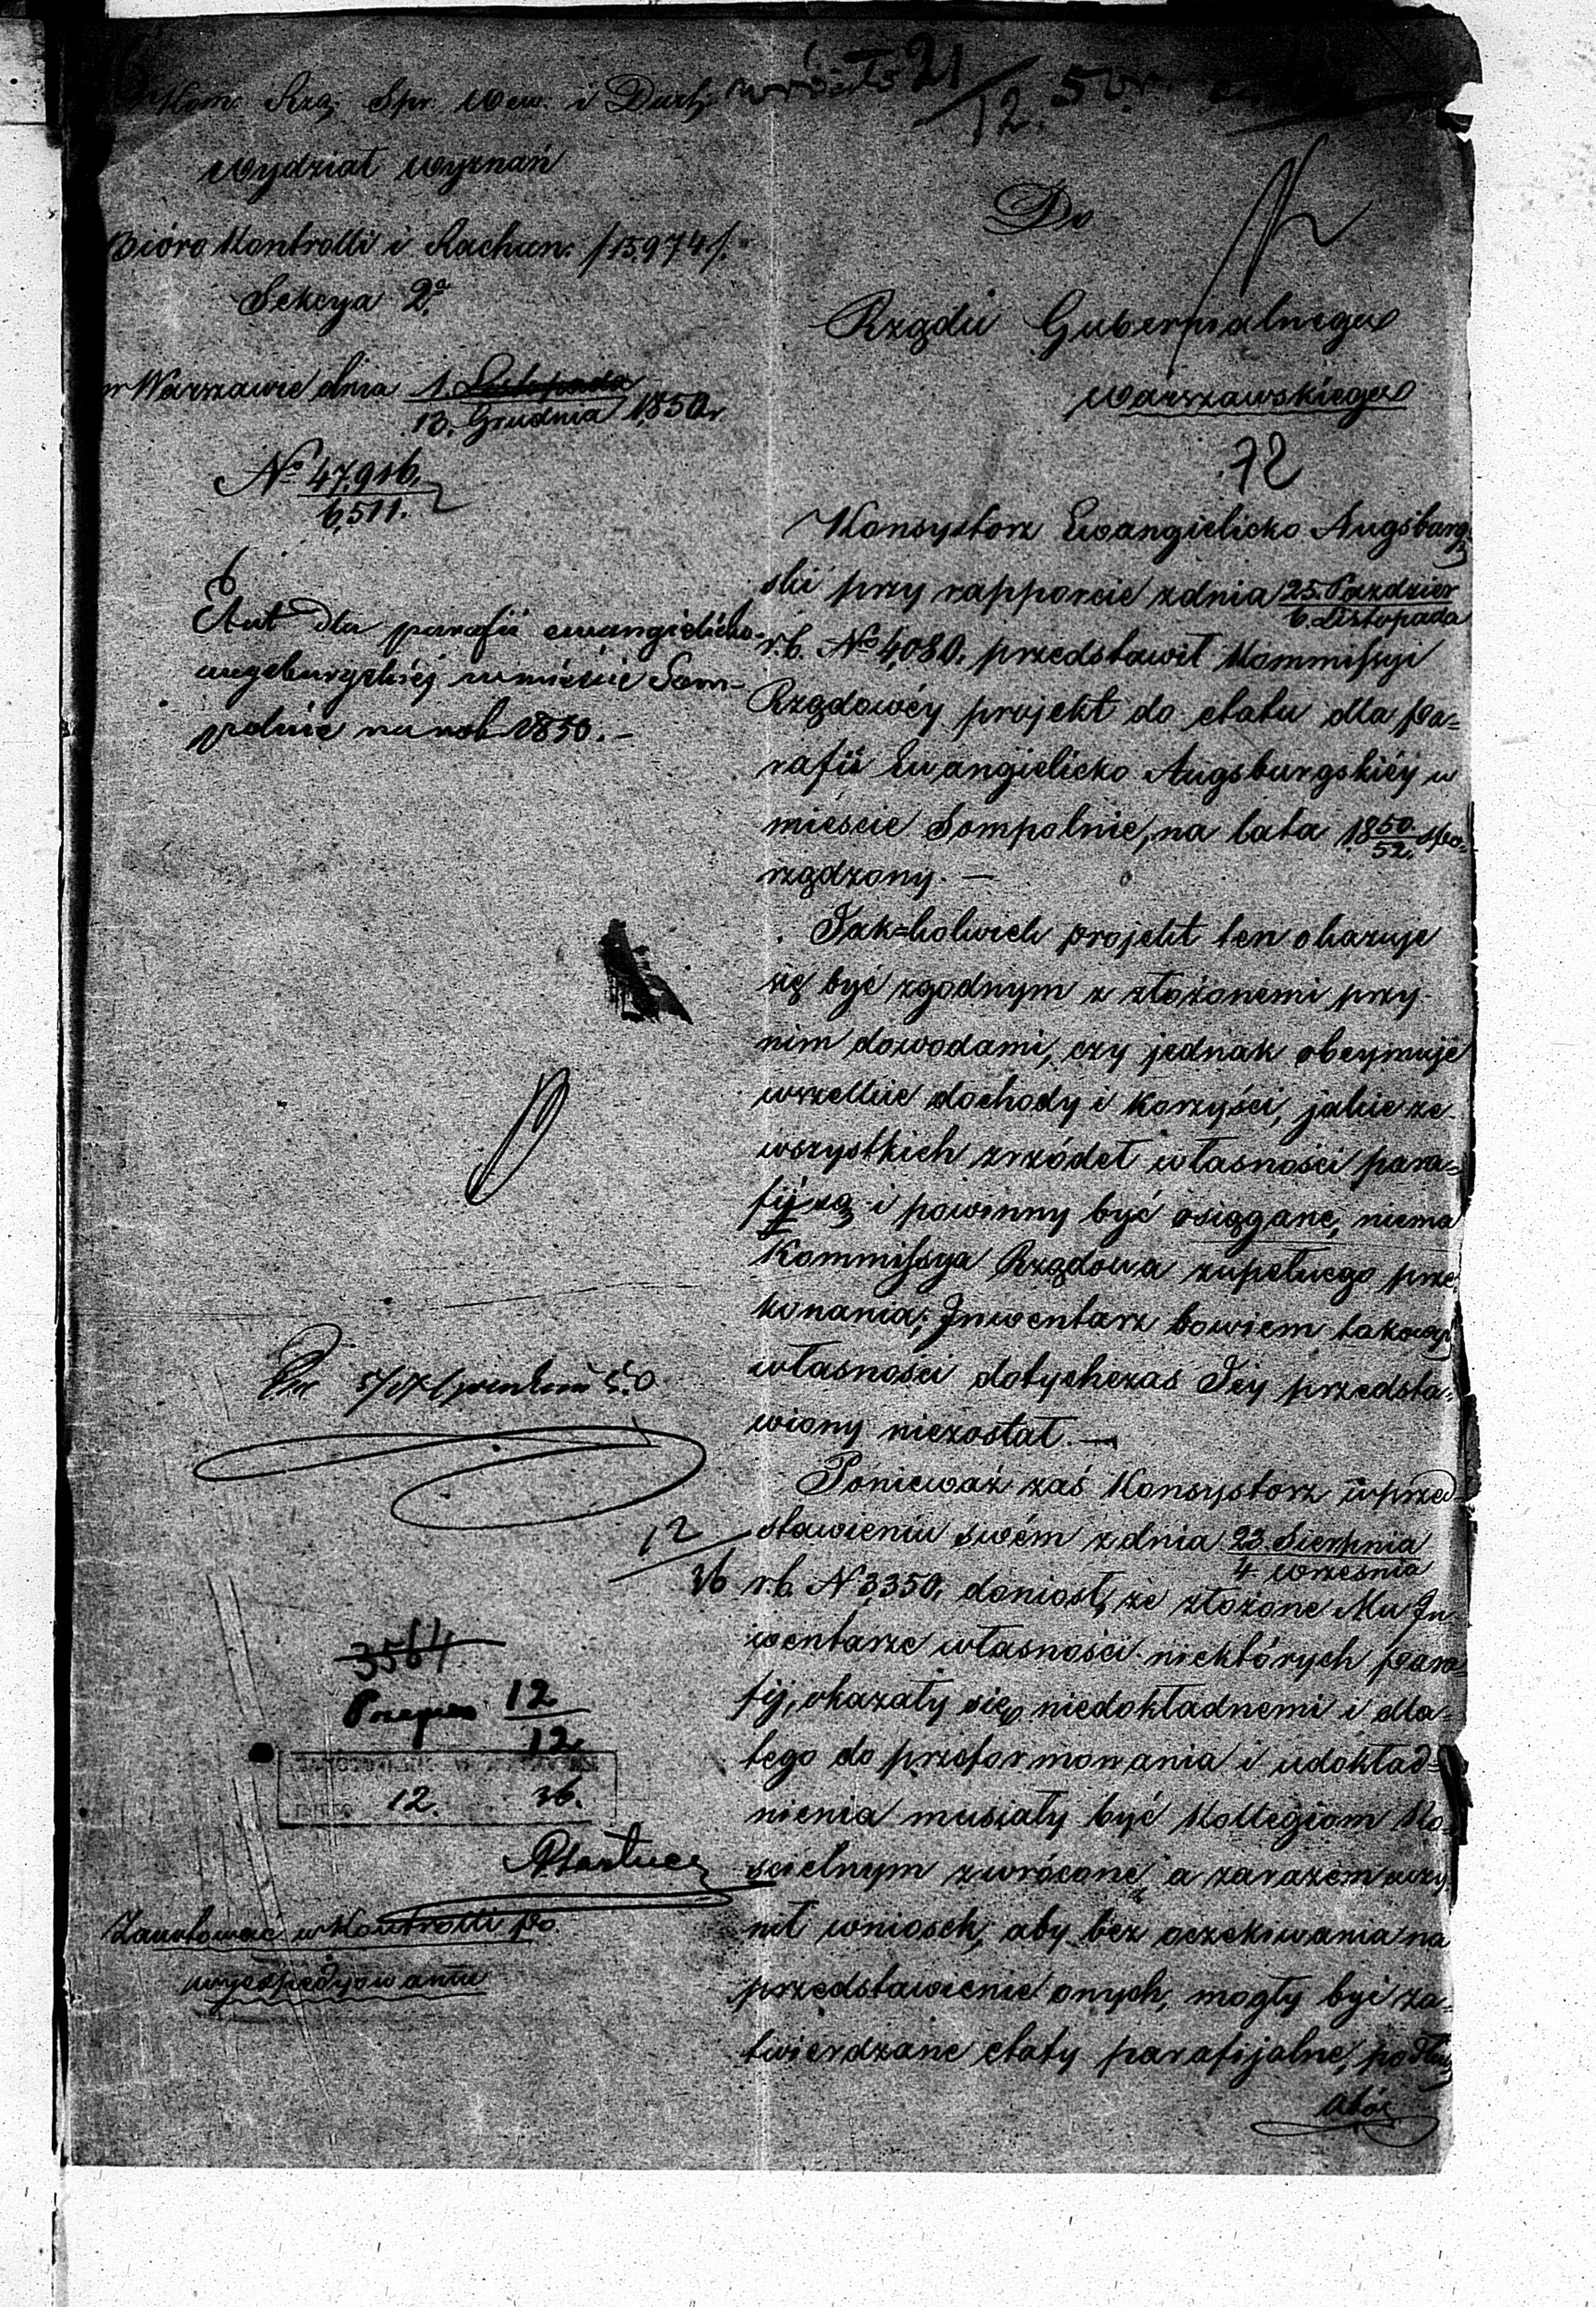 Kom. Rzą. Spr. Wew. i Duch.
wróciło 21/12. 50 r.
Wydział Wyznań
Bióro Kontrolli i Rachun. /15,974/.
Sekcya 2ª
w Warszawie dnia 1. Listopada
13. Grudnia 1850 r.
Nº 47,916.
6,511.
Etat dla parafii ewangielicko-
augsburgskiéj w mieście Som-
polnie na rok 1850. –
12
36
3564
12
12
12. 36.
Zanotować w Kontrolli po
wyexpedyowaniu
Do
Rządu Gubernialnego
Warszawskiego
72
Konsystorz Ewangielicko Augsburg-
ski przy rapporcie z dnia 25. Paździer
6. Listopada
r. b. Nº 4,080. przedstawił Kommissyi
Rządowéy projekt do etatu dla pa=
rafii Ewangielicko Augsburgskiéy w
mieście Sompolnie, na lata 1850/52. spo-
rządzony. —
Jak=kolwiek projekt ten okazuje
się być zgodnym z złożonemi przy
nim dowodami, czy jednak obeymuje
wszelkie dochody i korzyści, jakie ze
wszystkich zrzódeł własności para=
fij są i powinny być osiągane, niema
Kommissya Rządowa zupełnego prze
konania; Inwentarz bowiem takowéy
własności dotychczas Jéy przedsta-
wiony niezostał. —
Ponieważ zaś Konsystorz w przed=
stawieniu swém z dnia 23. Sierpnia
4 Września
r. b. N 3,350. doniosł, że złożone Mu In
wentarze własności niektórych para=
fij, okazały się niedokładnemi i dla=
tego do przeformowania i udokład=
nienia musiały być Kollegiom Ko=
ścielnym zwrócone, a zarazem uczy
nił wniosek, aby bez oczekiwania na
przedstawienie onych, mogły być za=
twierdzane etaty parafijalne, podług